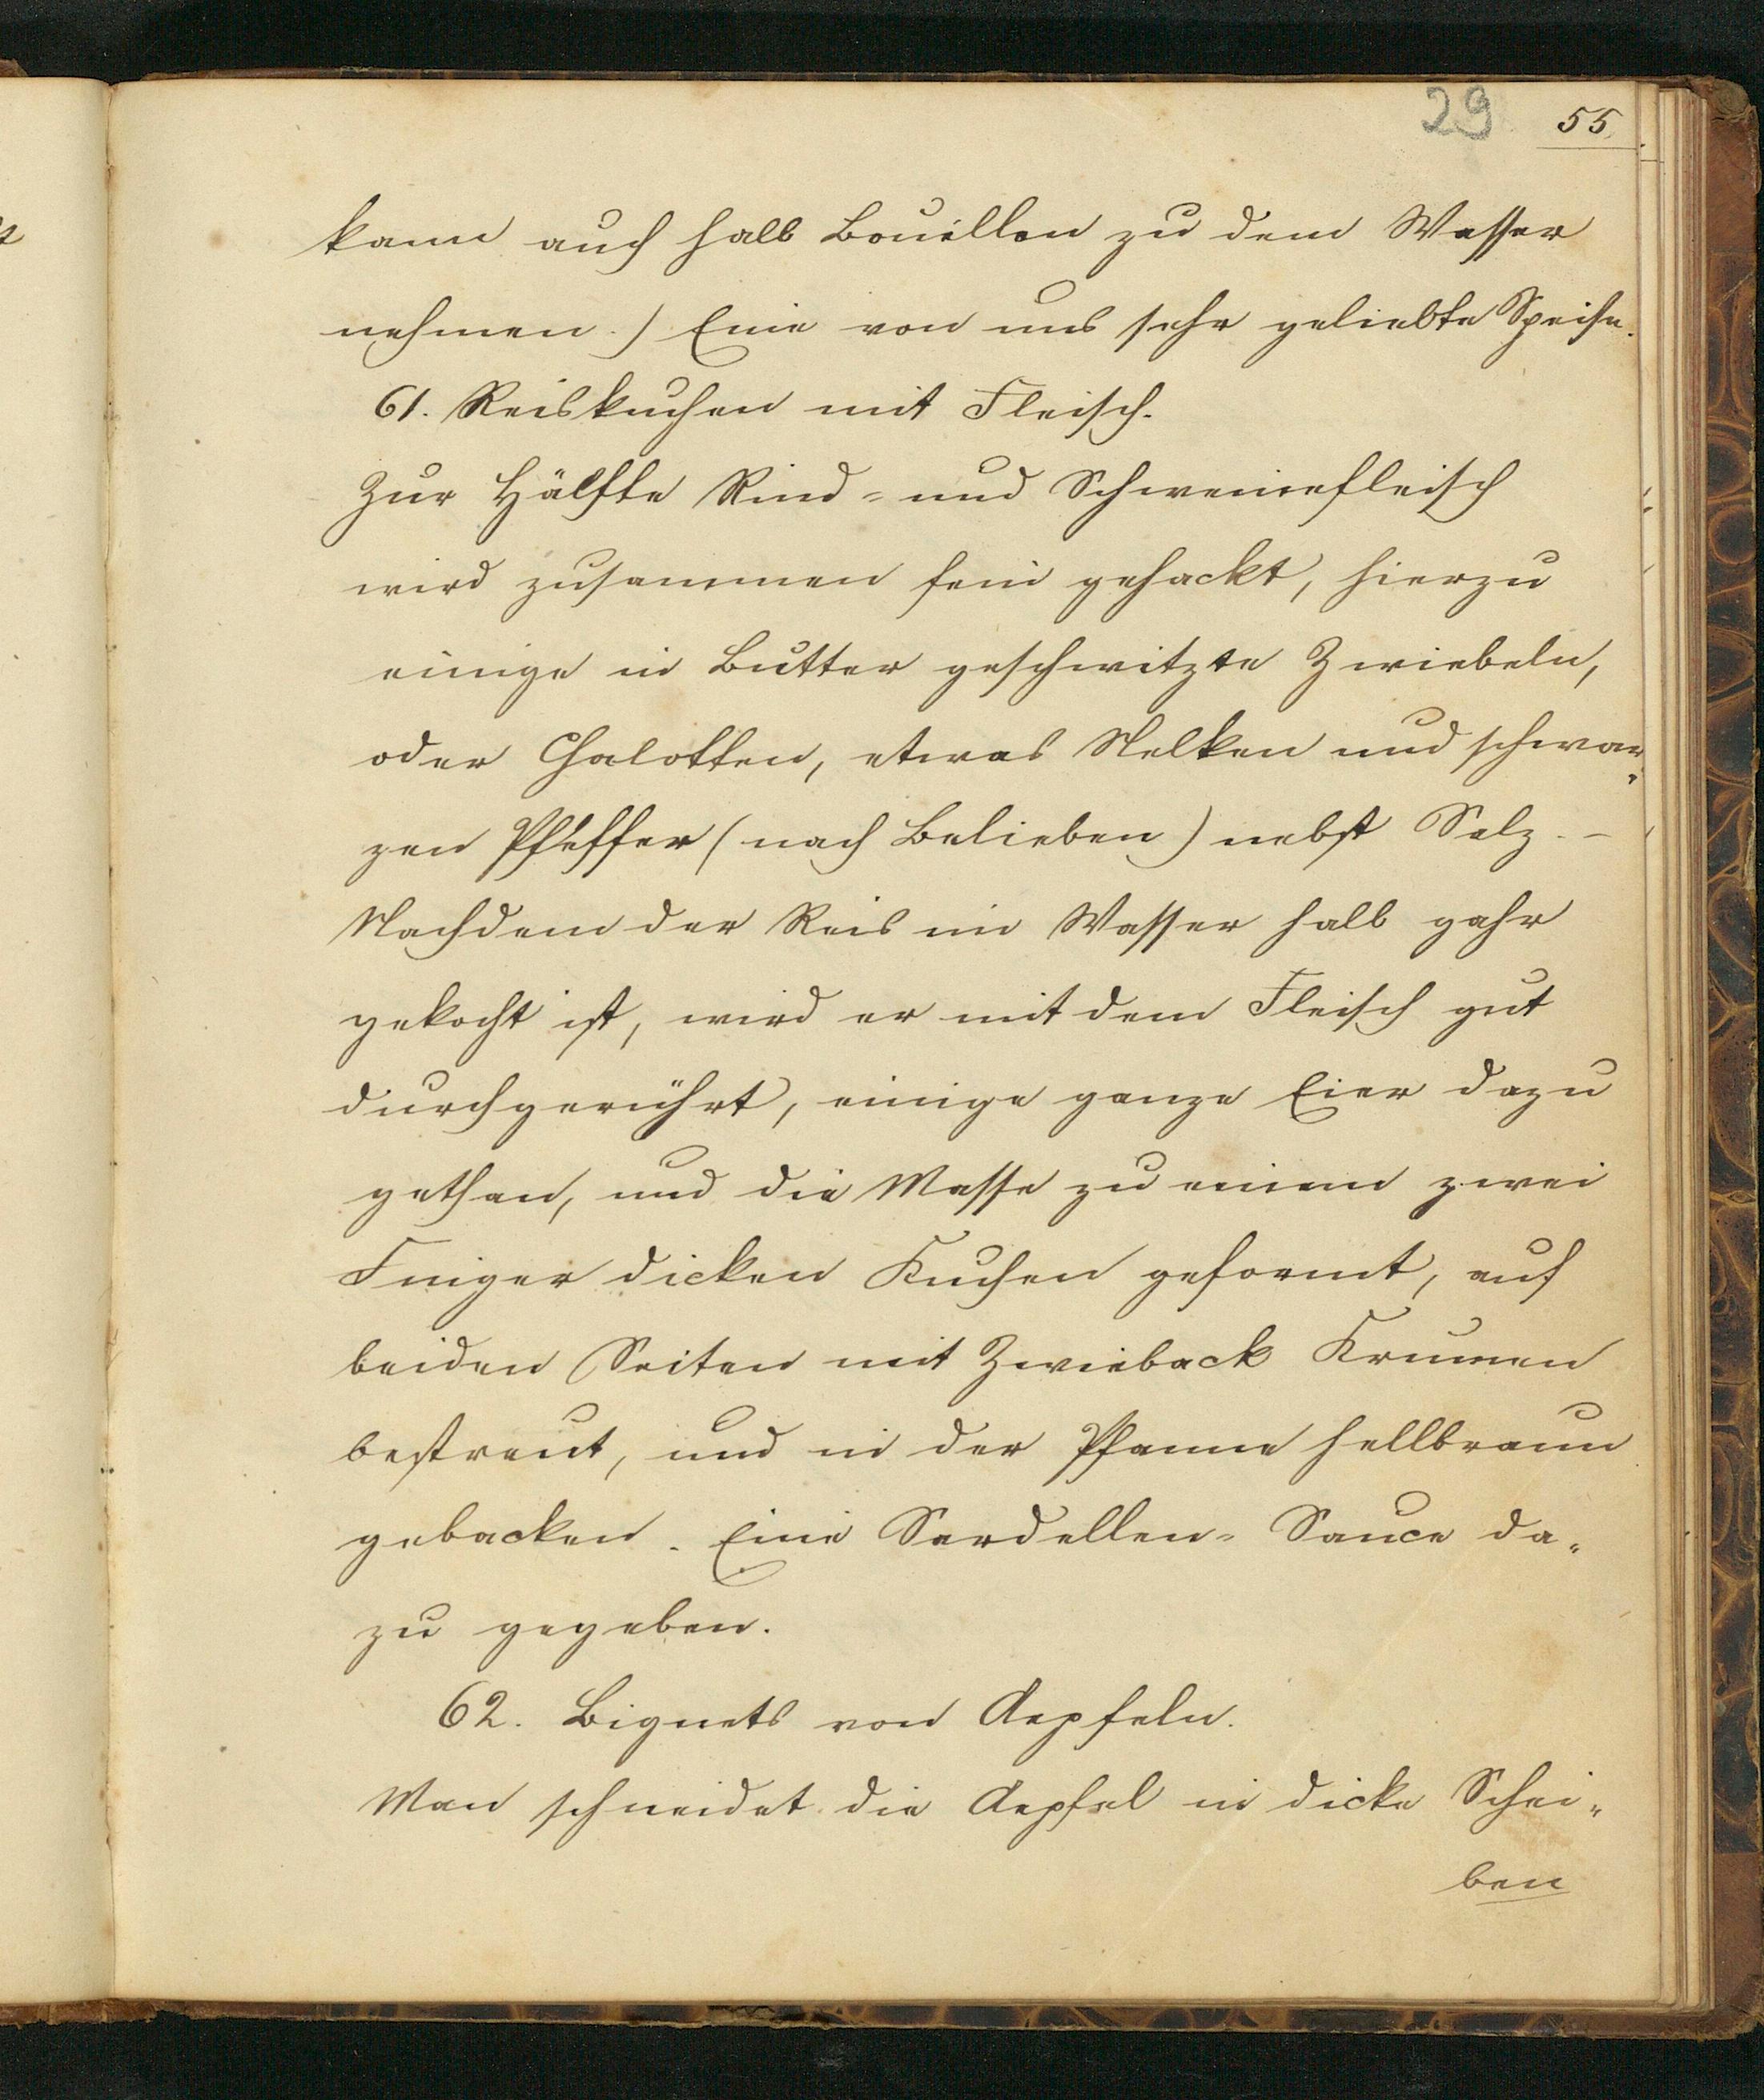 29 55.
kann auch halb Bouillon zu dem Wasser
nehmen.) Eine von uns sehr geliebte Speise.
61. Reiskuchen mit Fleisch.
Zur Hälfte Rind- und Schweinefleisch
wird zusammen fein gehackt, hierzu
einige in Butter geschwitzte Zwiebeln,
oder Chalotten, etwas Nelken und schwar-
zen Pfeffer (nach Belieben) nebst Salz. –
Nachdem der Reis in Wasser halb gahr
gekocht ist, wird er mit dem Fleisch gut
durchgerührt, einige ganze Eier dazu
gethan, und die Masse zu einem zwei
Finger dicken Kuchen geformt, auf
beiden Seiten mit Zwieback Krumen
bestreut, und in der Pfanne hellbraun
gebacken. Eine Sardellen-Sauce da-
zu gegeben.
62. Bignets von Aepfeln.
Man schneidet die Aepfel in dicke Schei-
ben